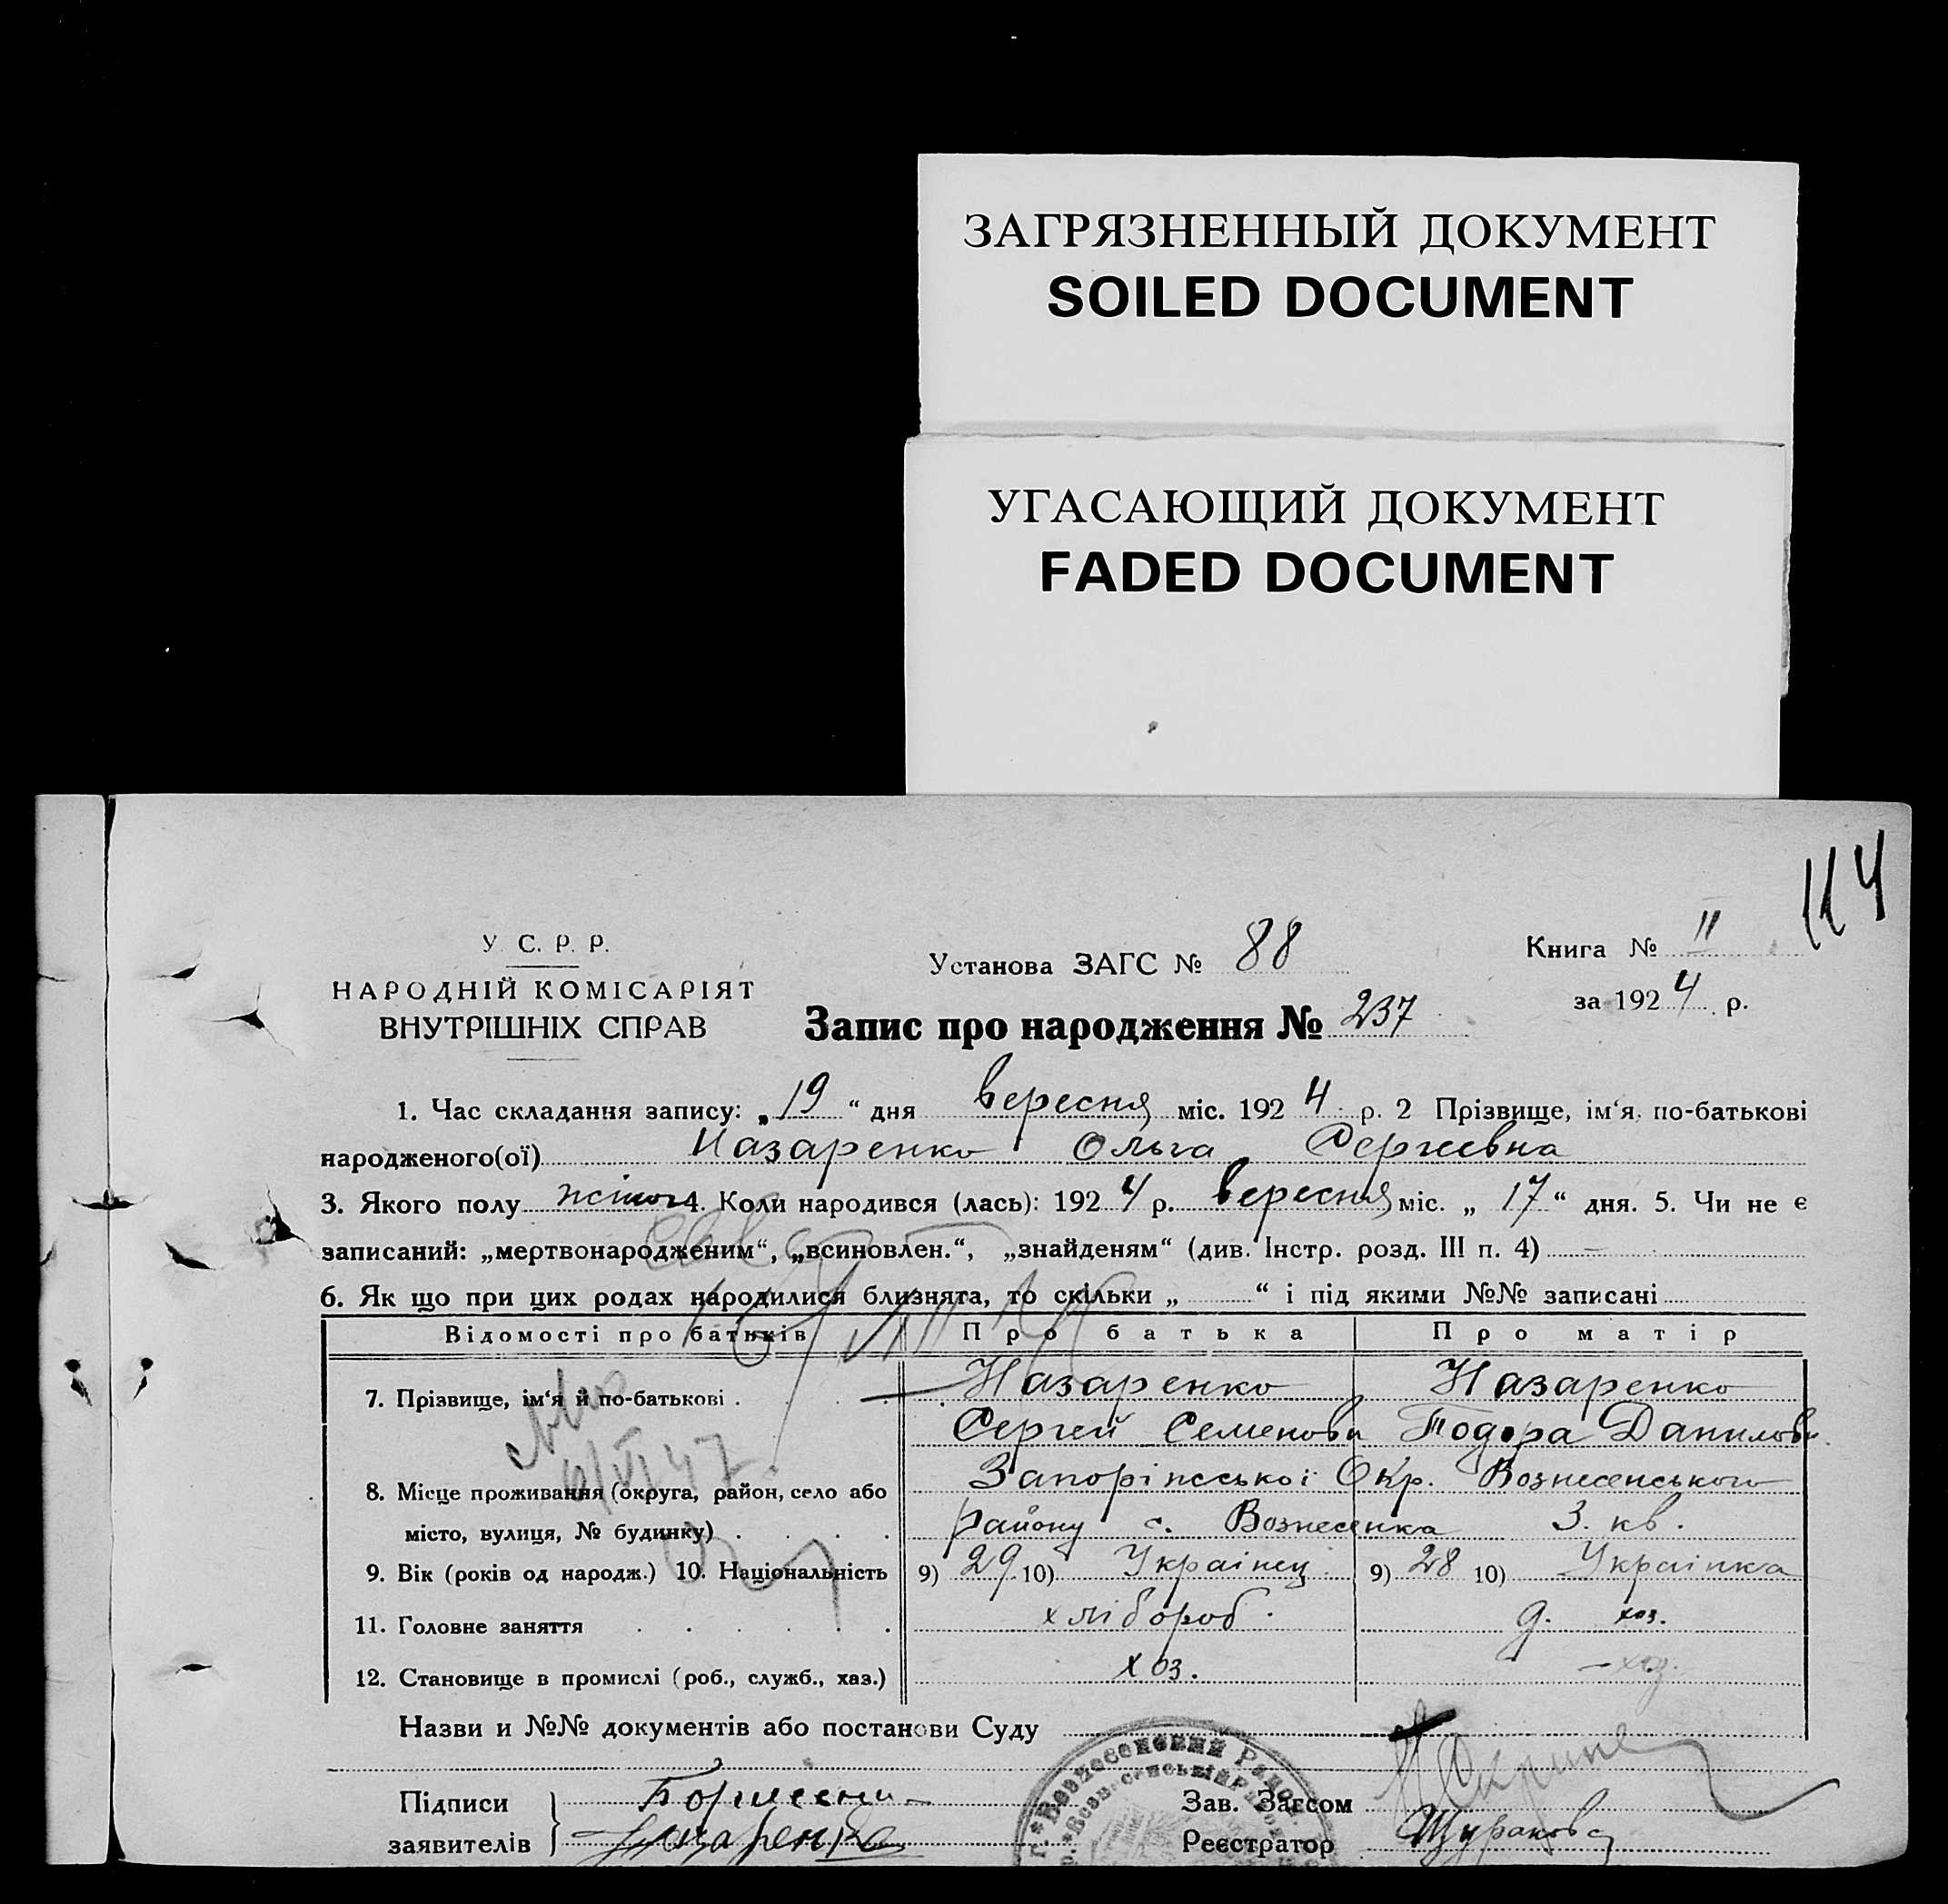 ЗАГРЯЗНЕННЫЙ ДОКУМЕНТ
SOILED DOCUMENT
УГАСАЮЩИЙ ДОКУМЕНТ
FADED DOCUMENT
114
У. С. Р. Р.
НАРОДНІЙ КОМІСАРІЯТ
ВНУТРІШНІХ СПРАВ
Установа ЗАГС № 88
Книга № II
за 1924 р.
Запис про народження № 237
1. Час складання запису: „19“ дня вересня міс. 1924 р. 2 Прізвище, ім‘я, по-батькові
народженого(ої) Назаренко Ольга Сергеевна
3. Якого полу жіноч 4. Коли народився (лась): 1924 р. вересня міс. „17“ дня. 5. Чи не є
записаний: „мертвонародженим“, „всиновлен.“, „знайденям“ (див. Інстр. розд. III п. 4) —
6. Як що при цих родах народилися близнята, то скільки „ “ і під якими №№ записані
Відомості про батьків Про батька Про матір
7. Прізвище, ім‘я й по-батькові Назаренко Назаренко
Сергей Семенови Тодора Данилов
6/VI 47
8. Місце проживання (округа, район, село або Запоріжської Окр. Вознесенського
місто, вулиця, № будинку) району с. Вознесенка 3. кв.
9. Вік (років од народж.) 10. Національність 9) 29 10) Українец 9) 28 10) Українка
11. Головне заняття хлібороб. д. хоз.
12. Становище в промислі (роб., служб., хаз.) хоз. — хоз.
Назви и №№ документів або постанови Суду
Підписи
заявителів
Назаренко
Зав. Загсом
Реєстратор Щуракова